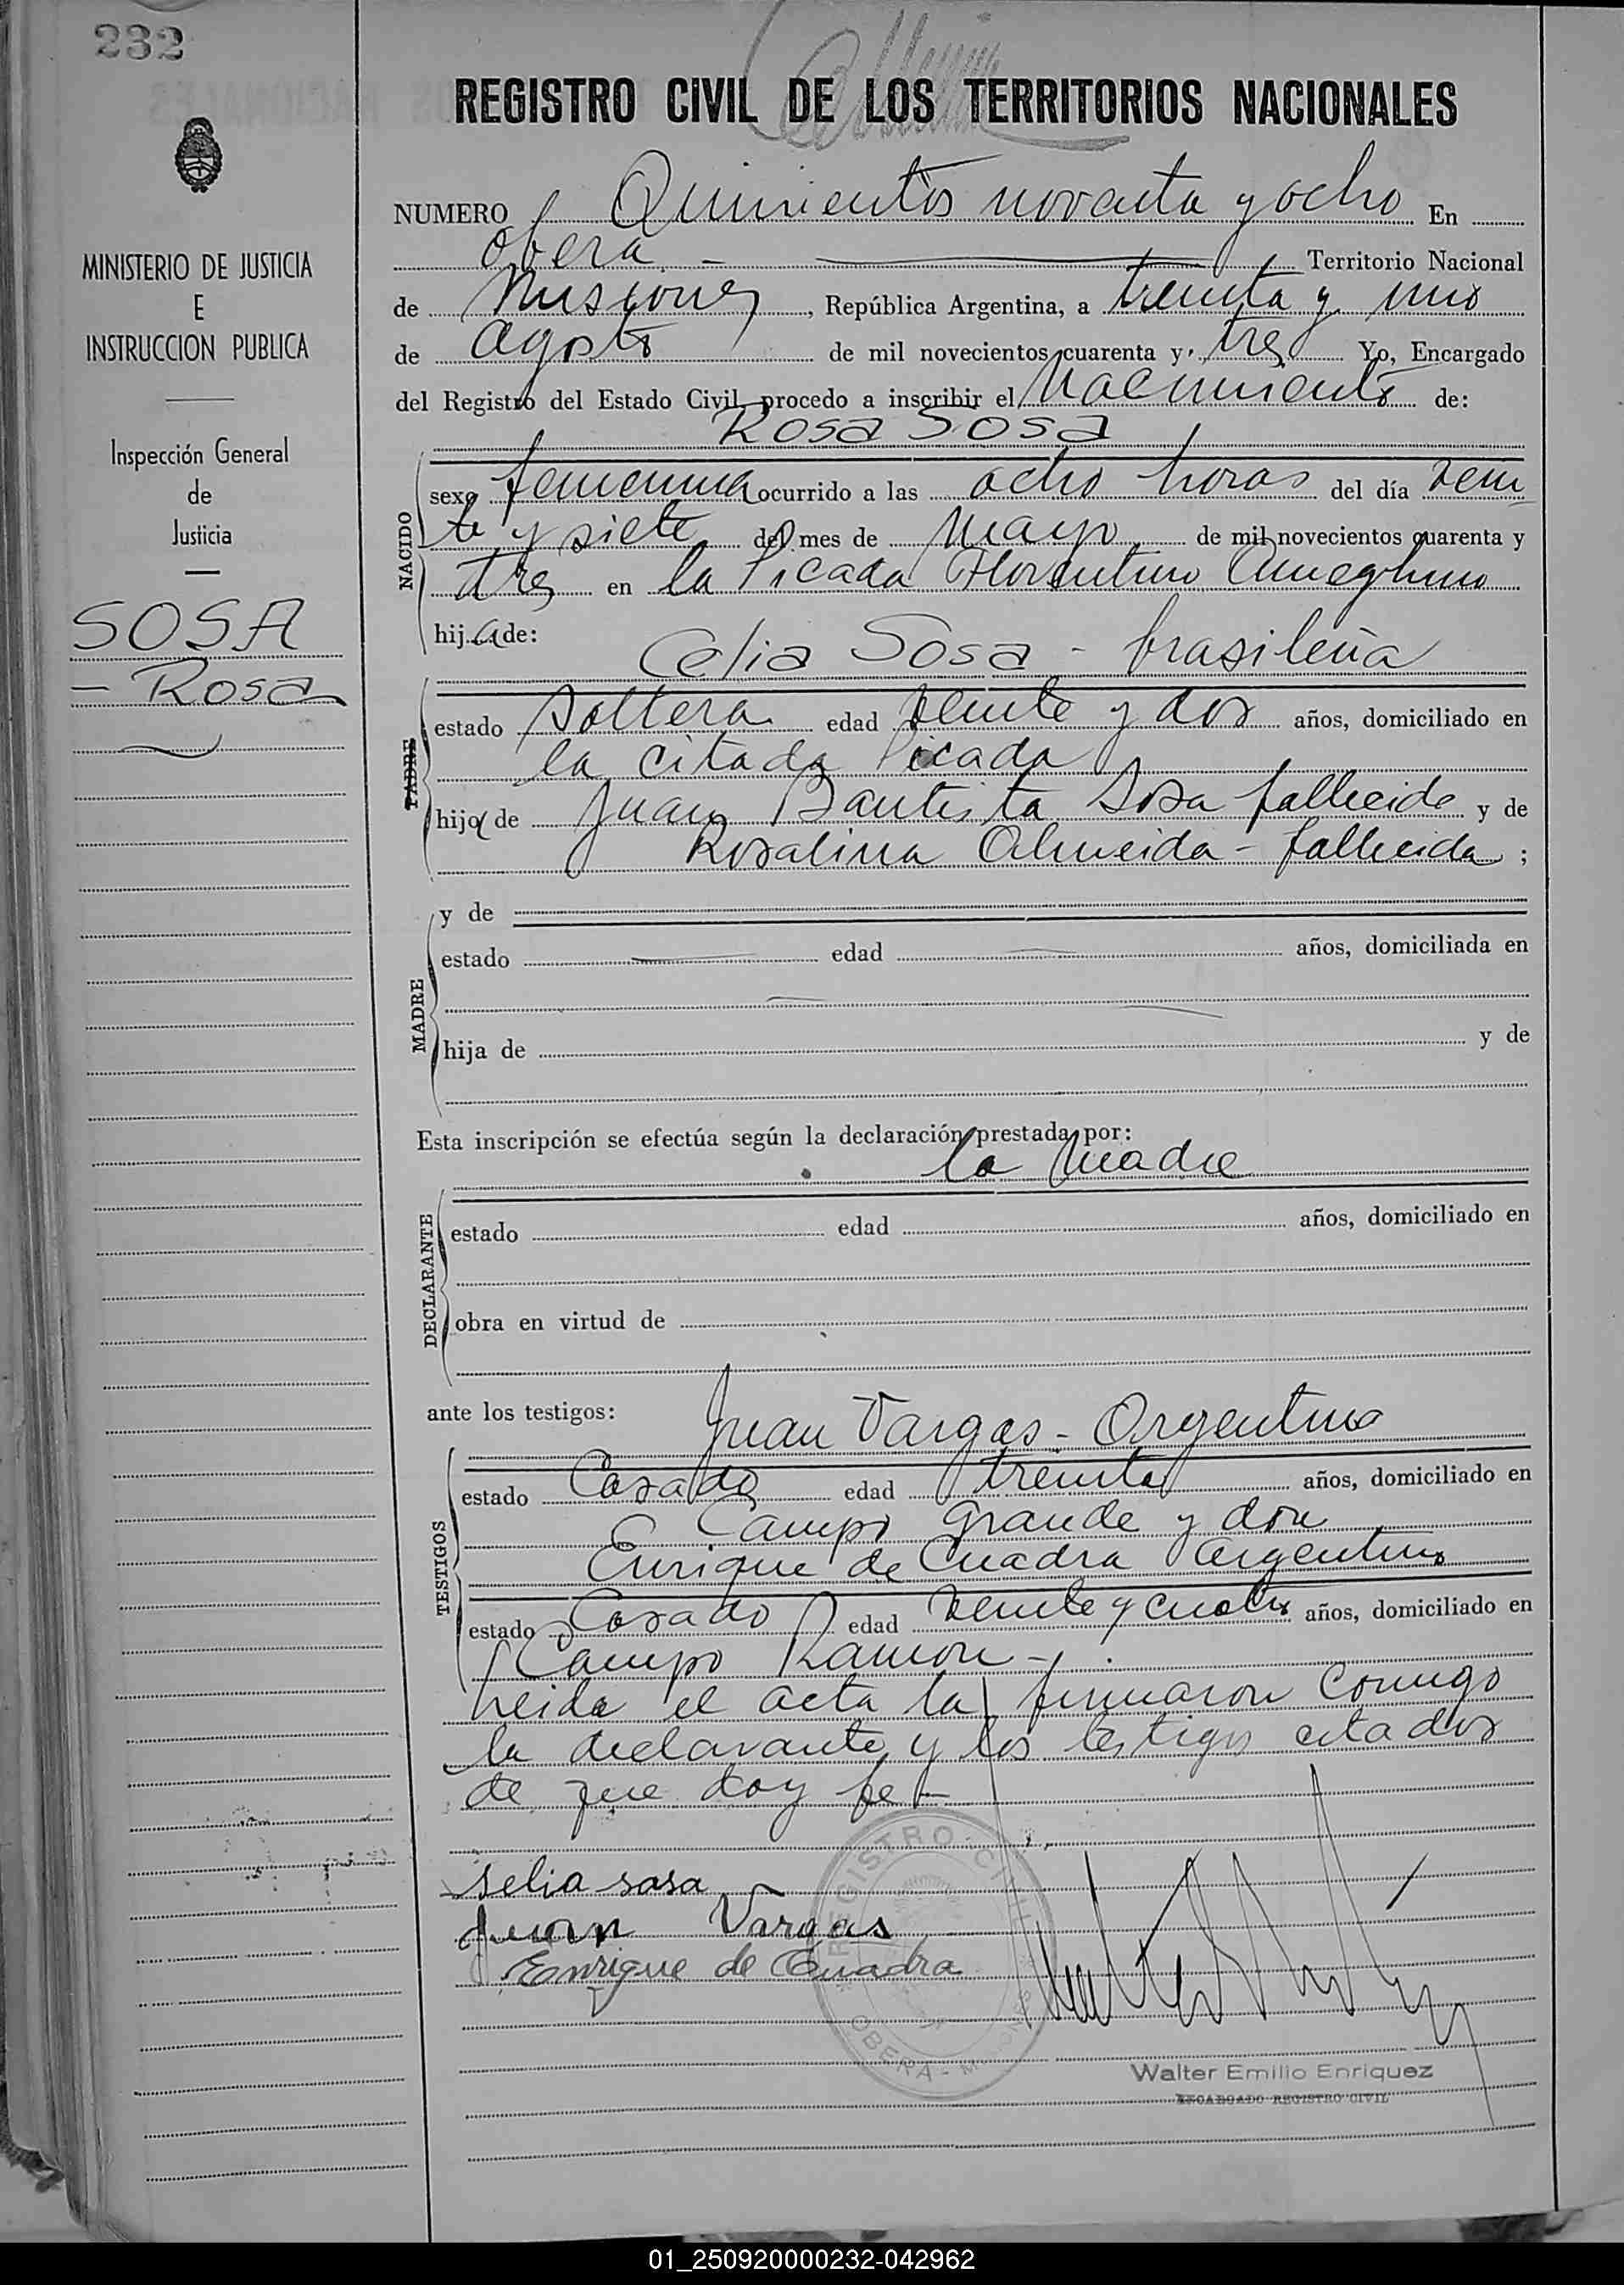 232
REGISTRO CIVIL DE LOS TERRITORIOS NACIONALES
MINISTERIO DE JUSTICIA
E
INSTRUCCION PUBLICA
Inspección General
de
Justicia
SOSA
- Rosa
NUMERO Quinientos noventa y ocho En
Oberá - Territorio Nacional
de Misiones, República Argentina, a treinta y uno
de Agosto de mil novecientos cuarenta y tres Yo, Encargado
del Registro del Estado Civil procedo a inscribir el Nacimiento de:
Rosa Sosa
NACIDO
sexo femenina ocurrido a las ocho horas del día vein
te y siete del mes de Mayo de mil novecientos cuarenta y
tres en la Picada Florentino Ameghino
hija de:
Celia Sosa - brasileña
PADRE
estado Soltera edad veinte y dos años, domiciliado en
la citada Picada
hijo de Juan Bautista Sosa fallecido y de
Rosalina Almeida - fallecida ;
y de
MADRE
estado edad años, domiciliada en
hija de y de
Esta inscripción se efectúa según la declaración prestada por:
la Madre
DECLARANTE
estado edad años, domiciliado en
obra en virtud de
ante los testigos:
Juan Vargas - Argentino
TESTIGOS
estado Casado edad treinta años, domiciliado en
Campo Grande y don
Enrique de Cuadra argentino
estado Casado edad veinte y cuatro años, domiciliado en
Campo Ramon -
Leida el acta la firmaron conmigo
la declarante y los testigos citados
de que doy fe -
selia sosa
Juan Vargas
Enrique de Cuadra
REGISTRO CIVIL
OBERA - MISIONES
Walter Emilio Enriquez
ENCARGADO REGISTRO CIVIL
01_250920000232-042962